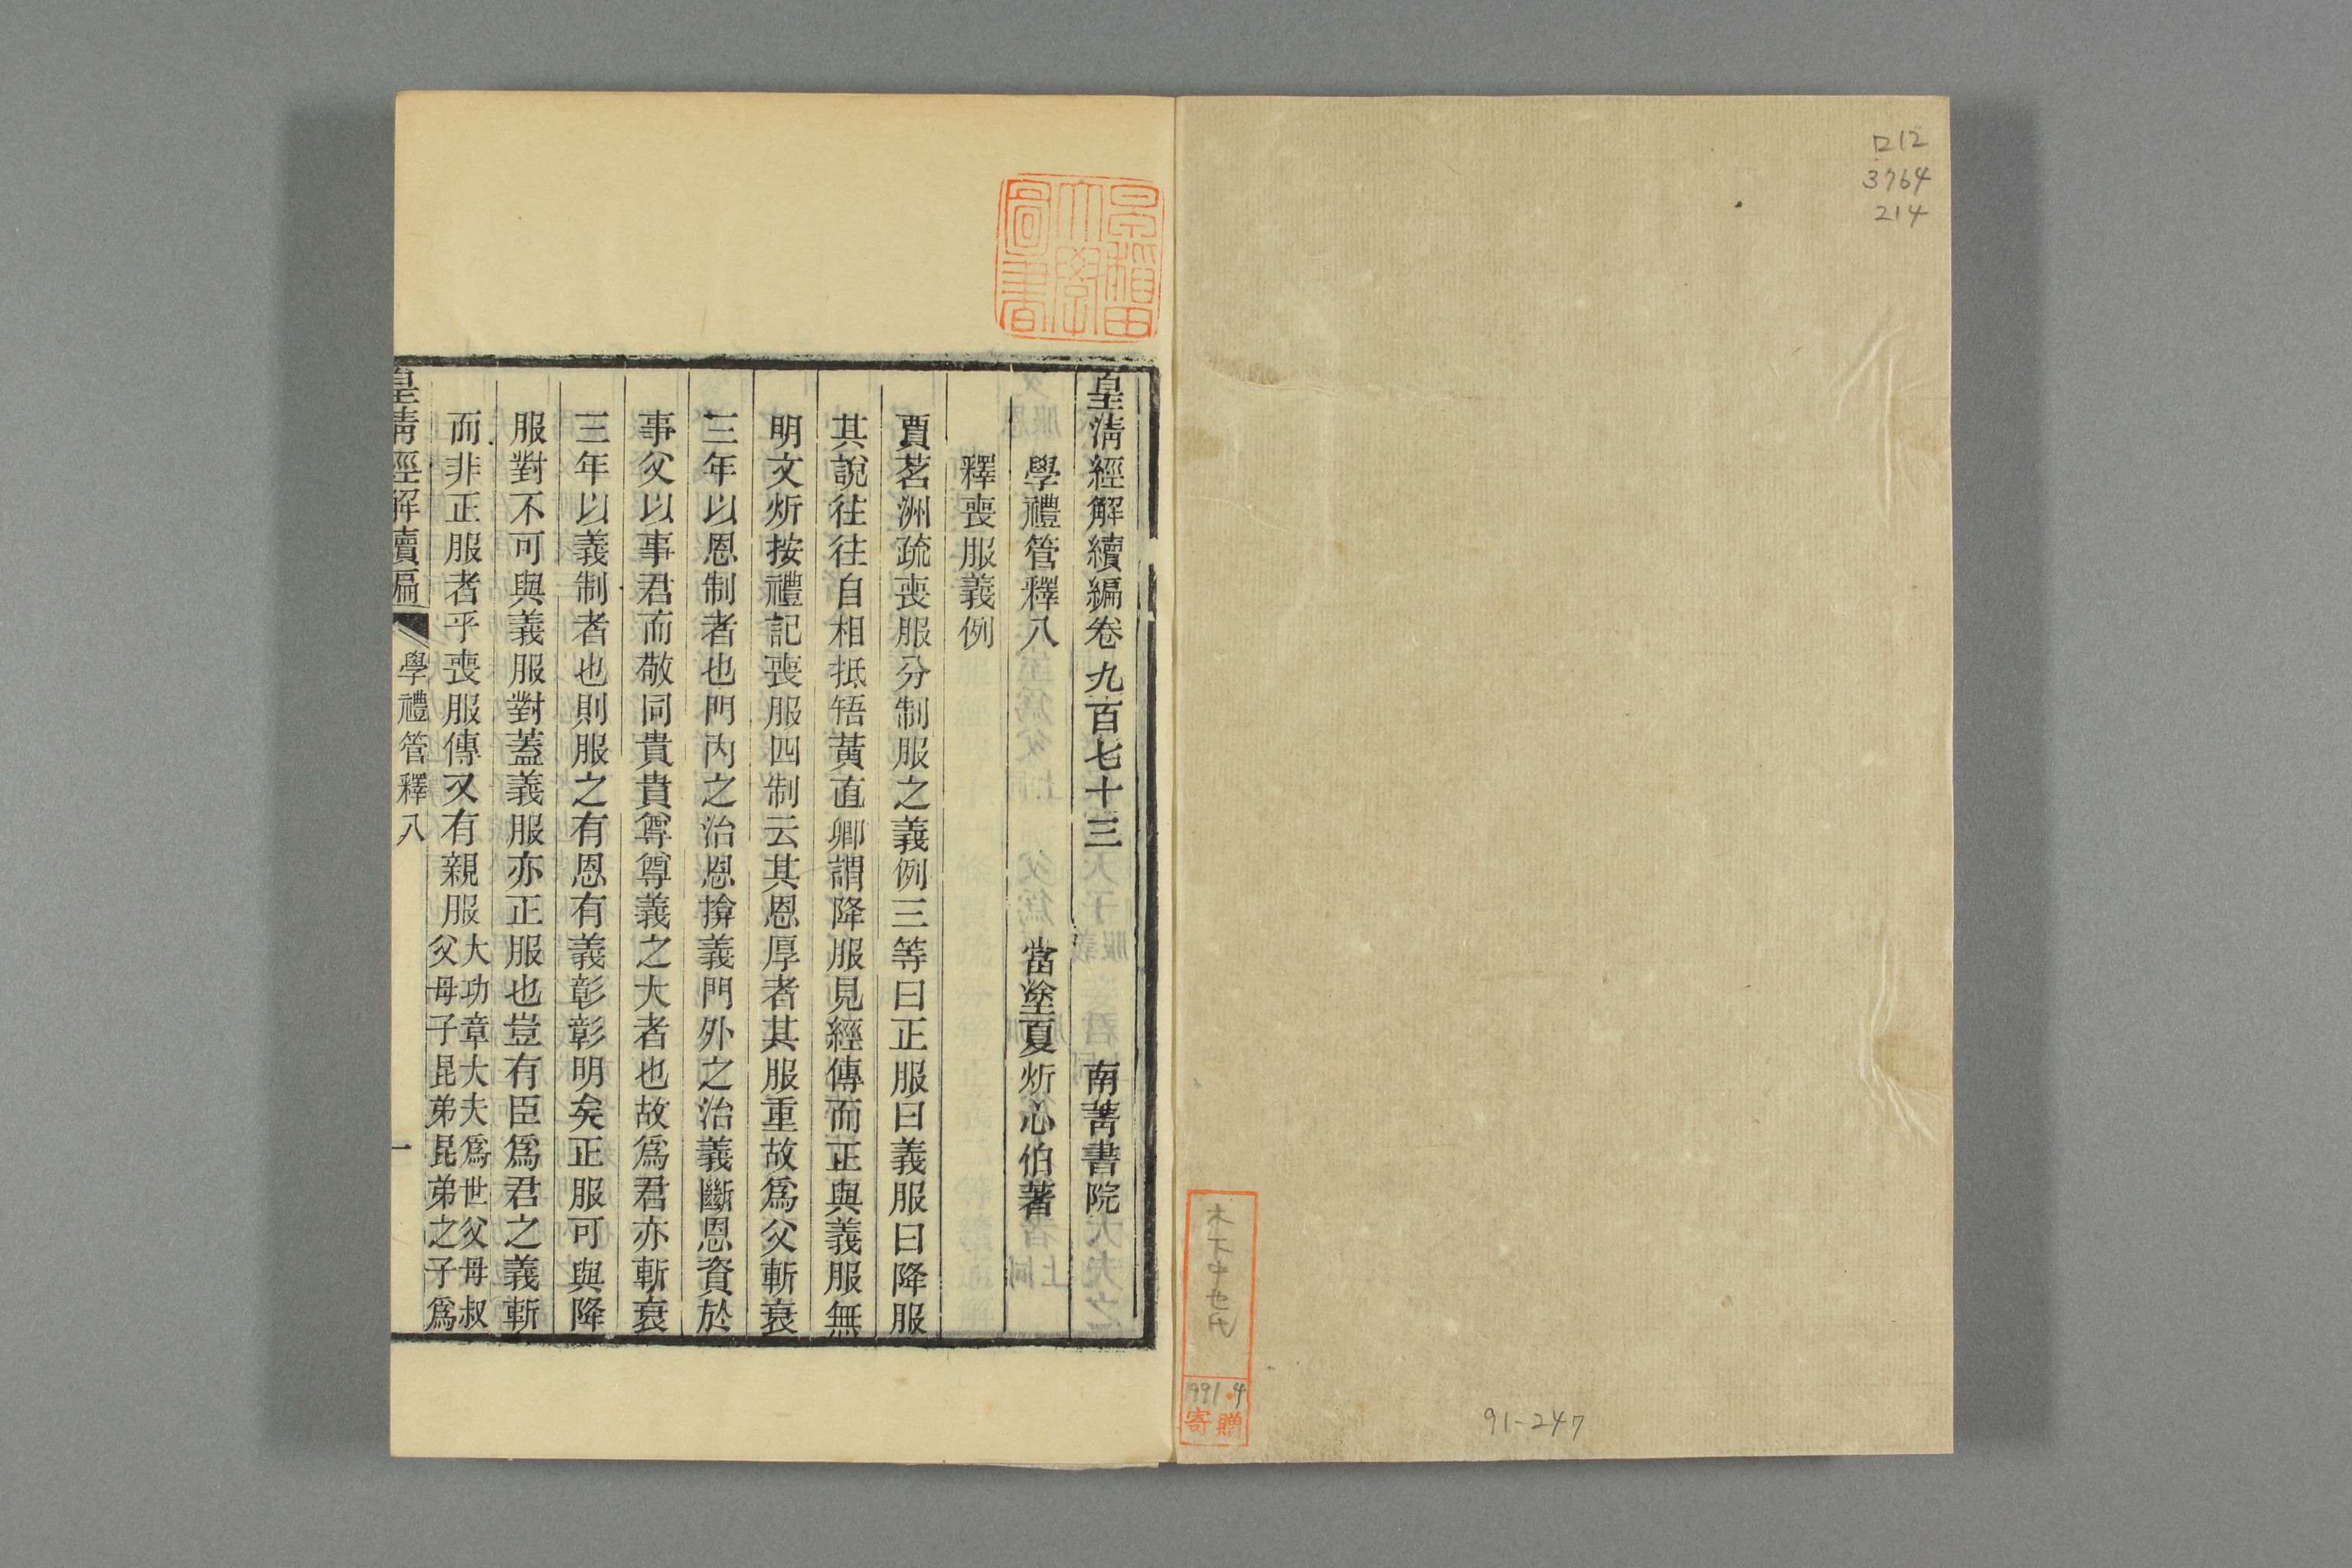 ロ12
3764
214
91-247
991.4
寄贈
早稲田大學圖書
皇淸經解續編卷九百七十三　南菁書院
學禮管釋八　當塗夏炘心伯著
釋喪服義例
賈茗洲疏喪服分制服之義例三等曰正服曰義服曰降服
其說往往自相抵牾黃直卿謂降服見經傳而正與義服無
明文炘按禮記喪服四制云其恩厚者其服重故爲父斬衰
三年以恩制者也門內之治恩揜義門外之治義斷恩資於
事父以事君而敬同貴貴尊尊義之大者也故爲君亦斬衰
三年以義制者也則服之有恩有義彰彰明矣正服可與降
服對不可與義服對蓋義服亦正服也豈有臣爲君之義斬
而非正服者乎喪服傳又有親服大功章大夫爲世父母叔
父母子昆弟昆弟之子爲
皇淸經解續編　學禮管釋八　一